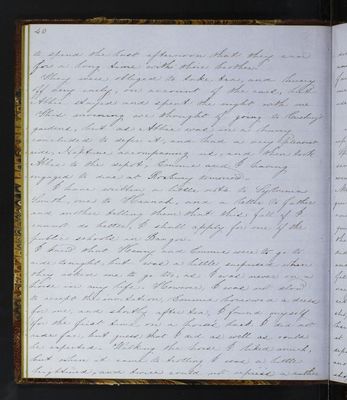 40
to spend the last afternoon that they can
for a long time with their brother.
They were obliged to take tea, and hurry
off very early, on account of the cars, but
Abbie stayed and spent the night with me
This morning we thought of going to
gardens, but as Abbie was in a hurry
concluded to defer it, and had a very pleasant
ride, accompanying us, and then took
Abbie to the depot, Emmie and I having
engaged to dine at Roxbury tomorrow.
I have written a little note to
Smith, one to Hannah, and a letter to father
and mother telling them that this fall if I
cannot do better, I shall apply for one of the
public schools in Bangor.
I heard that and Emma were to go to
ride tonight, but was a little surprised when
they asked me to go too, as I was never on a
horse in my life. However, I was not slow
to accept the invitation. Emma borrowed a dress
for me, and shortly after tea, I found myself
for the first time on a horse's back. I did not
ride far, but guess that I did as well as could
be expected. Walking the horse I liked much,
but when it came to trotting I was a little
frightened, and twice could not repress a